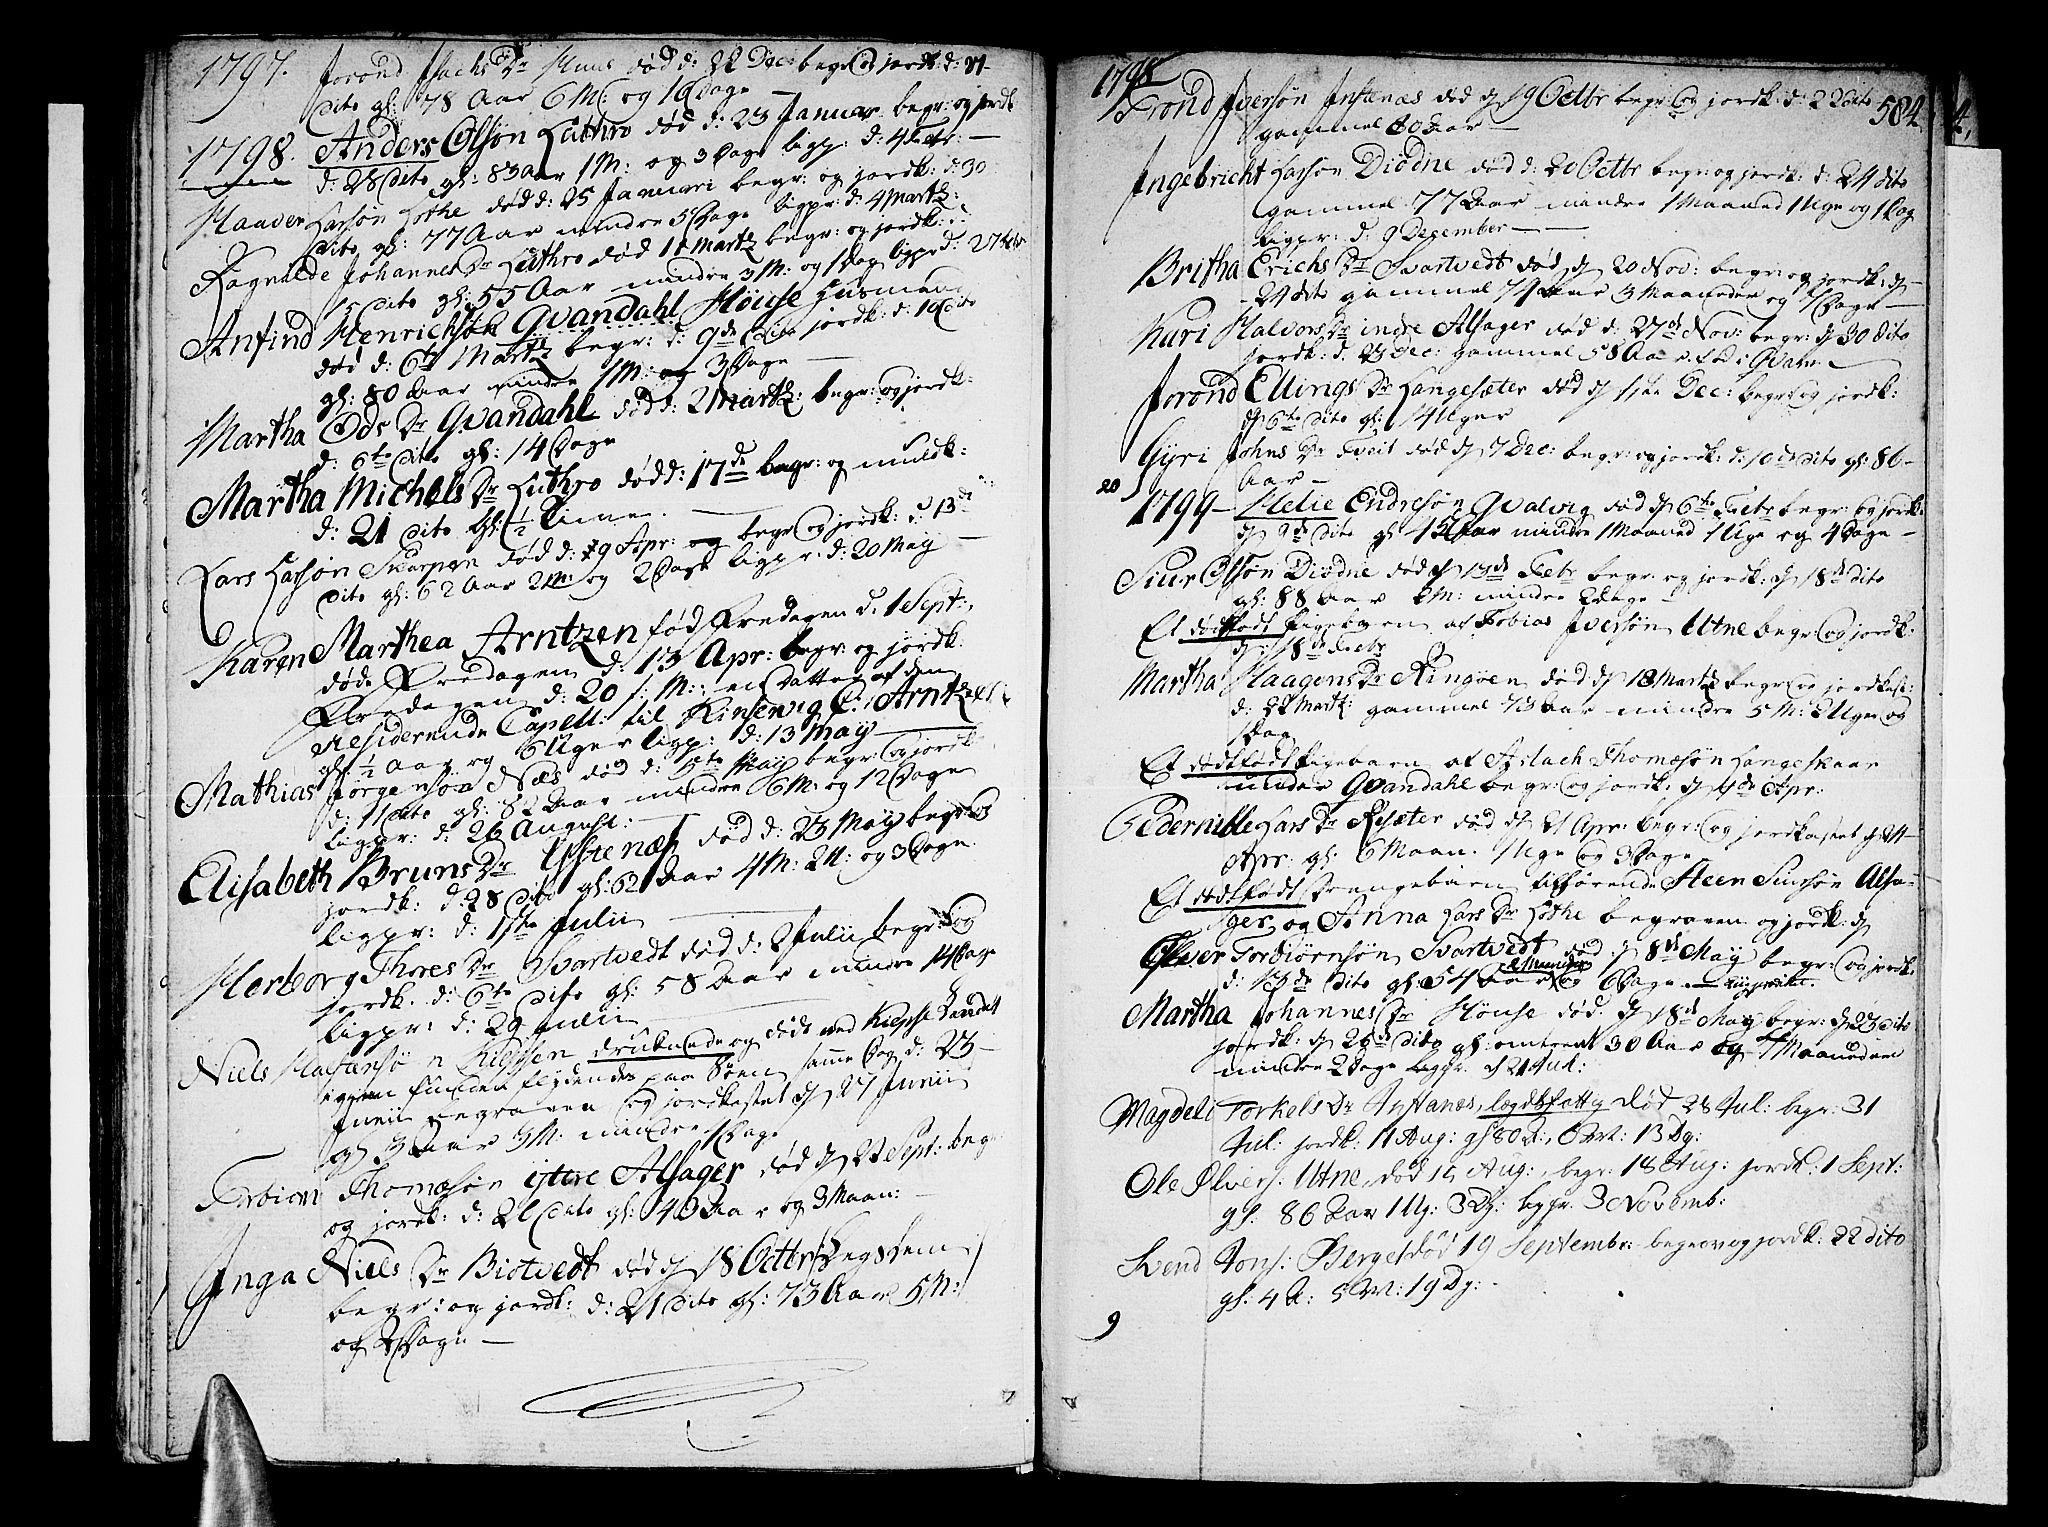 1797. Jorond Isachs Dr Huus død d: 22 Dec: begr: og jordk: d: 21
dito gl: 78 Aar 6 M: og 16 Dage
1798. Anders Olsøn Luthro død d: 23 Januar begr: og jordk
d: 28 dito gl: 83 Aar 1 M: og 3 Dage ligp: d: 4 Febr: —
Haaver Larsøn Lothe død d: 25 Januari begr: og jordk: d: 30
dito gl: 77 Aar mindre 5 Dage ligpr: d: 4 Martz:
Ragnilde Johannes Dr Luthro død 11 Martz begr: og jordk: d:
15 dito gl: 55 Aar mindre 3 M: og 1 Dag ligpr d: 27
Anfind Henrichsøn Qvandahl Høuse Husmand
død d: 6te Martz begr: d: 9de dito jordk: d: 16 dito
gl: 80 Aar mindre 1 M: og 3 Dage —
Martha Ods Dr Qvandahl død d: 2 Martz: begr: og jordk:
d: 6te dito gl: 14 Dage
Martha Michels Dr Luthro død d: 17de begr: og muldk:
d: 21 dito gl: ½ Time. —
Lars Larsøn Skarpen død d: 9 Apr: og begr: og jordk: d: 13de
dito gl: 62 Aar 2 M: og 2 Dage ligpr: d: 20 May —
Karen Marthea Arntzen fød Fredagen d. 1 Sept:,
døde Fredagen d: 13 Apr: begr: og jordk:
Fredagen d: 20 s: M:, en Datter af den
Residerende Capell: til Kinservig C: Arntzen
gl: ½ Aar og 6 Uger ligp: d: 13 May
Mathias Jørgensøn Næs død d: 5te May begr: og jordk:
d: 11 dito gl: 82 Aar mindre 6 M: og 12 Dage
ligpr: d: 26 August: —
Elisabeth Bruns Dr Ystenæs død d: 23 May begr: og
jordk: d: 28 dito gl: 62 Aar 4 M: 2 U: og 3 Dage
ligpr: d: 1ste Julii
Herborg Thores Dr Svartvedt død d: 2 Julii begr: og
jordk. d: 6te dito gl: 58 Aar mindre 14 Dage
ligpr: d: 29 Julii
Niels Halstensøn Kielsen druknede og døde ved
igien funden flydendes paa Søen samme Dag d: 23
Junii begraven og jordkastet d 27 Junii
gl 3 Aar 3 M: mindre 1 Dage
Torbiørn Thomesøn ijttre Alsager død d 22 Sept: begr
og jordk: d: 26 dito gl: 43 Aar og 3 Maan: —
Inga Niels Dr Biotvedt død d 18 Octbr Legdslem
begr: og jordk: d: 21 dito gl: 73 Aar 5 M:
og 2 Dage —
1798
584
Trond Iversøn Instenæs død d 19 Octbr begr: og jordk: d: 22 dito
gammel 80 Aar —
Ingebricht Larsøn Diødne død d: 20 Octbr begr: og jordk: d: 24 dito
gammel 77 Aar mindre 1 Maaned 1 Uge og 1 Dag
ligpr: d: 9 December —
Britha Erichs Dr Svartvedt død d 20 Nov: begr: og jordk: d
24 dito gammel 71 Aar 3 Maaneder og 4 Dage —
Kari Halvors Dr indre Alsager død d: 27de Nov: begr: d 30 dito
jordk: d. 23 Dec: gammel 58 Aar
Jorond Ellings Dr Langesæter død d 1ste Dec: begr: og jordk:
d 6te dito gl: 14 Uger
Gyri Johns Dr Tveit død d 7 Dec: begr: og jordk: d: 10de dito gl: 86
Aar —
20
1799 — Helie Endresøn Qvalvig død d 6te Febr begr: og jordk:
d 9de dito gl 45 Aar mindre 1 Maaned 1 Uge og 4 Dage —
Siur Olsøn Diødne død d 13de Febr begr: og jordk: d 18de dito
gl: 88 Aar 2 M: mindre 2 Dage —
Et dødfødt Pigebarn af Tobias Iversøn Utne begr: og jordk:
d: 18de Febr
Martha Haagens Dr Ringøen død d 18 Martz begr: og jordkast:
d: 22 Martz: gammel 73 Aar mindre 5 M: 2 Uger og
1 Dag
Et dødfødt Pigebarn af Aslach Thomesøn Langeskaar
under Qvandahl begr: og jordk: d 4de Apr:
Pedernille Lars Dr Resæter død d 21 Apr: begr: og jordkastet d 24
Apr: gl: 6 Maan. 1 Uge og 3 Dage
Et dødfødt Drengebarn tilhørende Steen Siursøn Alsa-
ger og Anna Lars Dr Lothe begraven og jordk: d
Olver Torbiørnsøn Svartvedt død d 8de May begr: og jordk:
d: 13de dito gl: 54 Aar og 6 Dage —
Martha Johannes Dr Høuse død d 18de May begr: d 23 dito
jordk: d 26de dito gl: omtrent 30 Aar og 7 Maaneder
mindre 2 Dage ligpr. d 21 Jul:
Magdeli Torkels Dr Instanæs, lægdsfattig Død 28 Jul: begr: 31
Jul: jordk: 11 Aug: gl 80 A:, 6 M: 13 Dg:
Ole Olvers: Utne, død 15 Aug:, begr: 18 Aug: jordk: 1 Sept:
gl: 86 Aar 1 Ug: 3 Dg: ligpr. 3 Novemb:
Svend Jons: Berge død 19 Septembr: begrov og jordk: 22 dito
gl: 4 A: 5 M: 19 Dg: -
9